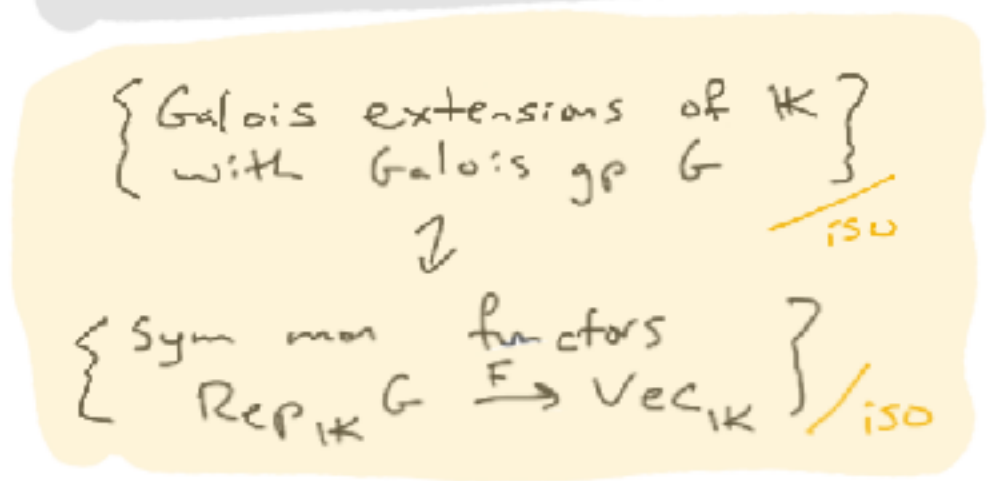 { Galois extensions of 𝕂
with Galois gp G } / iso
↕
{ Sym mon functors
Rep_𝕂 G →^F Vec_𝕂 } / iso